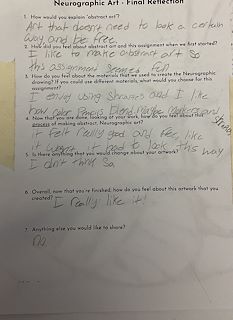 Neurographic Art - Final Reflection
1. How would you explain 'abstract art'?
Art that doesn't need to look a certain
way and be free
2. How did you feel about abstract art and this assignment when we first started?
I like to make abstract art so
this assignment seemed fun
3. How do you feel about the materials that we used to create the Neurographic
drawing? If you could use different materials, what would you change for this
assignment?
I enjoy using Sharpies and I like
how Color Pencils Blend Maybe Markers and
4. Now that you are done, looking at your work, how do you feel about this
process of making abstract, Neurographic art?
it felt really good and free, like
it wasn't it had to look this way
5. Is there anything that you would change about your artwork?
I don't think so
6. Overall, now that you're finished, how do you feel about this artwork that you
created? I really like it!
7. Anything else you would like to share?
no